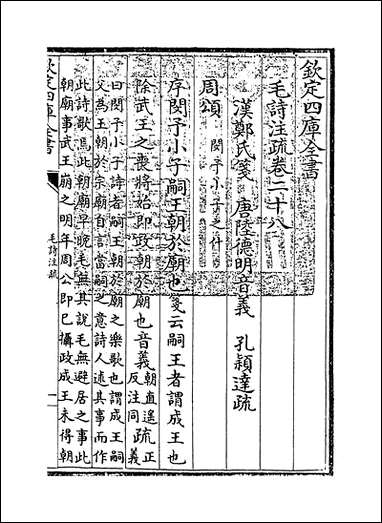 欽定四庫全書
毛詩注疏卷二十八
漢鄭氏箋 唐陸德明音義 孔穎達疏
周頌 閔予小子之什
序閔予小子嗣王朝於廟也箋云嗣王者謂成王也
除武王之喪將始即政朝於廟也音義朝直遥反注同疏正義
曰閔予小子詩者嗣王朝於廟之樂歌也謂成王嗣
父為王朝於宗廟自言當嗣之意詩人述其事而作
此詩歌焉此朝廟早晚毛無其說毛無避居之事此
朝廟事武王崩之明年周公即已攝政成王未得朝
欽定四庫全書
毛詩注疏
一